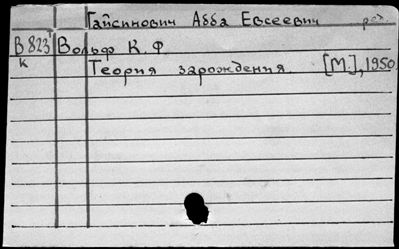 Гайсинович Абба Евсеевич ред.
В 823 Вольф К. Ф.
к Теория зарождения. [М.], 1950